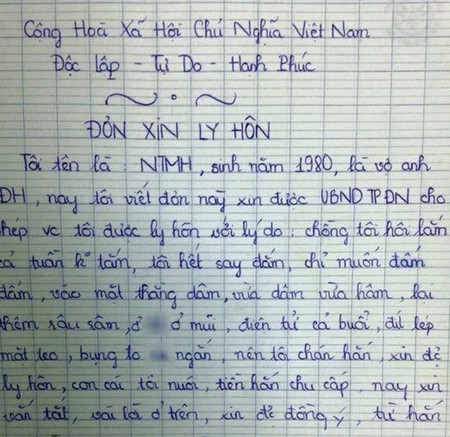 Cộng Hoà Xã Hội Chủ Nghĩa Việt Nam
Độc lập - Tự Do - Hạnh Phúc
ĐƠN XIN LY HÔN
Tôi tên là : NTMH, sinh năm 1980, là vợ anh
ĐH, nay tôi viết đơn này xin được UBND TP ĐN cho
hép vc tôi được ly hôn với lý do : chồng tôi hôi lắm
cả tuần k tắm, tôi hết say đắm, chỉ muốn đấm
đấm, vào mắt thằng dâm, vừa dâm vừa hâm, lại
thêm sâu sâm, ở ở mũi, điện tử cả buổi, đít lép
mặt leo, bụng to ngắn, nên tôi chán hắn, xin để
ly hôn, con cái tôi nuôi, tiền hắn chu cấp, nay xin
vắn tắt, vài lời ở trên, xin để đồng ý, từ hắn